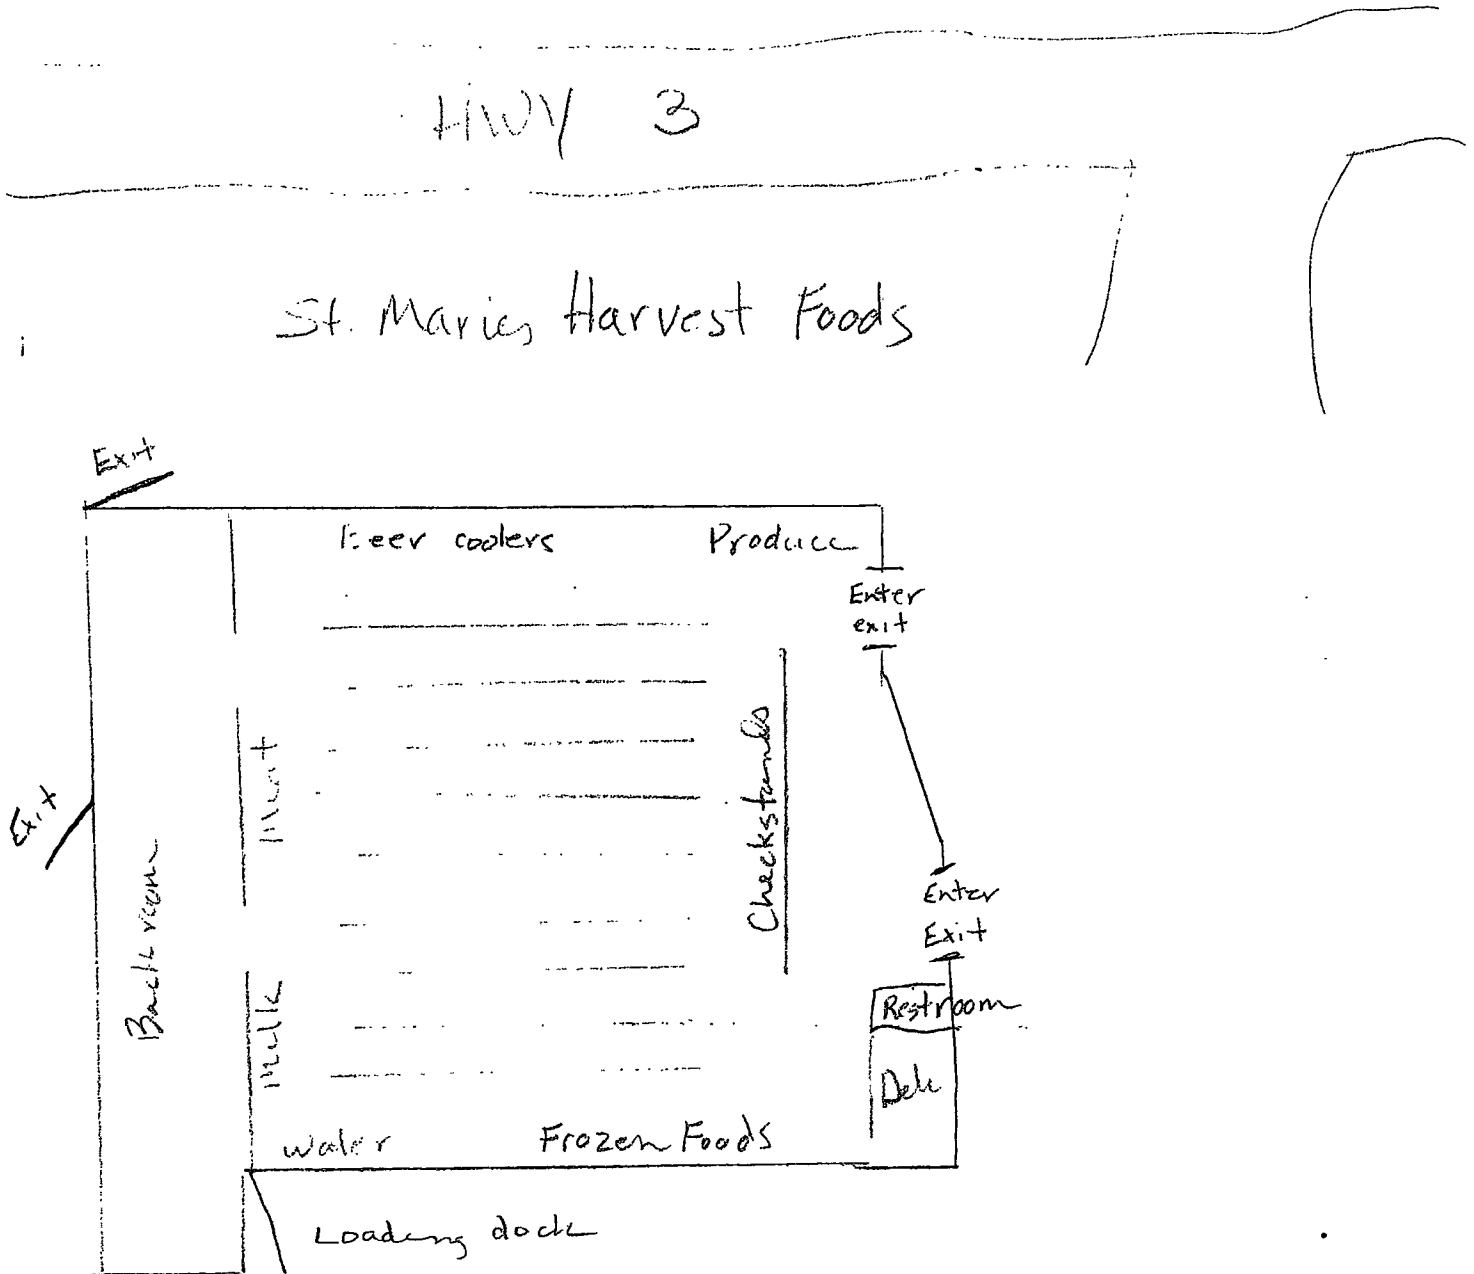 HWY 3
St. Maries Harvest Foods
Exit
Beer coolers
Produce
Enter
exit
Meat
Checkstands
Exit
Back room
Enter
Exit
Milk
Restroom
Deli
Water
Frozen Foods
Loading dock